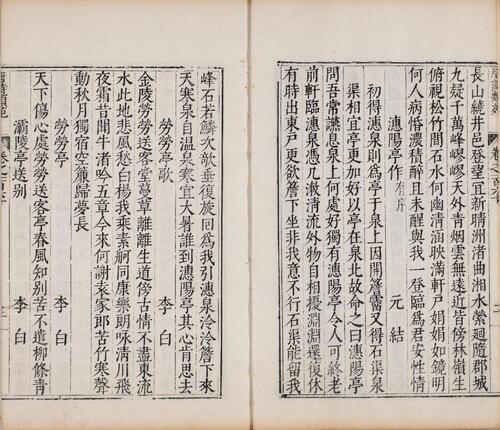 長山繞井邑登望宜新晴洲渚曲湘水縈迴隨郡城
九疑千萬峰嵺嵺天外青烟雲無遠近皆傍林嶺生
俯視松竹間石水何幽清涵映滿軒戶娟娟如鏡明
何人病惛濃積醉且未醒與我一登臨為君安性情
潓陽亭作有序 元結
初得潓泉則為亭于泉上因開簷霤又得石渠泉
渠相宜亭更加好以亭在泉北故命之曰潓陽亭
問吾常讌息泉上何處好獨有潓陽亭令人可終老
前軒臨潓泉憑几漱清流外物自相擾淵淵還復休
有時出東戶更欲簷下坐非我意不行石渠能留我
峰石若鱗次欹垂復旋回為我引潓泉泠泠簷下來
天寒泉自溫泉寒宜大暑誰到潓陽亭其心肯思去
勞勞亭歌 李白
金陵勞勞送客堂蔓草離離生道傍古情不盡東流
水此地悲風愁白楊我乘素舸同康樂朗咏清川飛
夜霜昔聞牛渚吟五章今來何謝袁家郎苦竹寒聲
動秋月獨宿空簾歸夢長
勞勞亭 李白
天下傷心處勞勞送客亭春風知別苦不遣柳條青
灞陵亭送別 李白